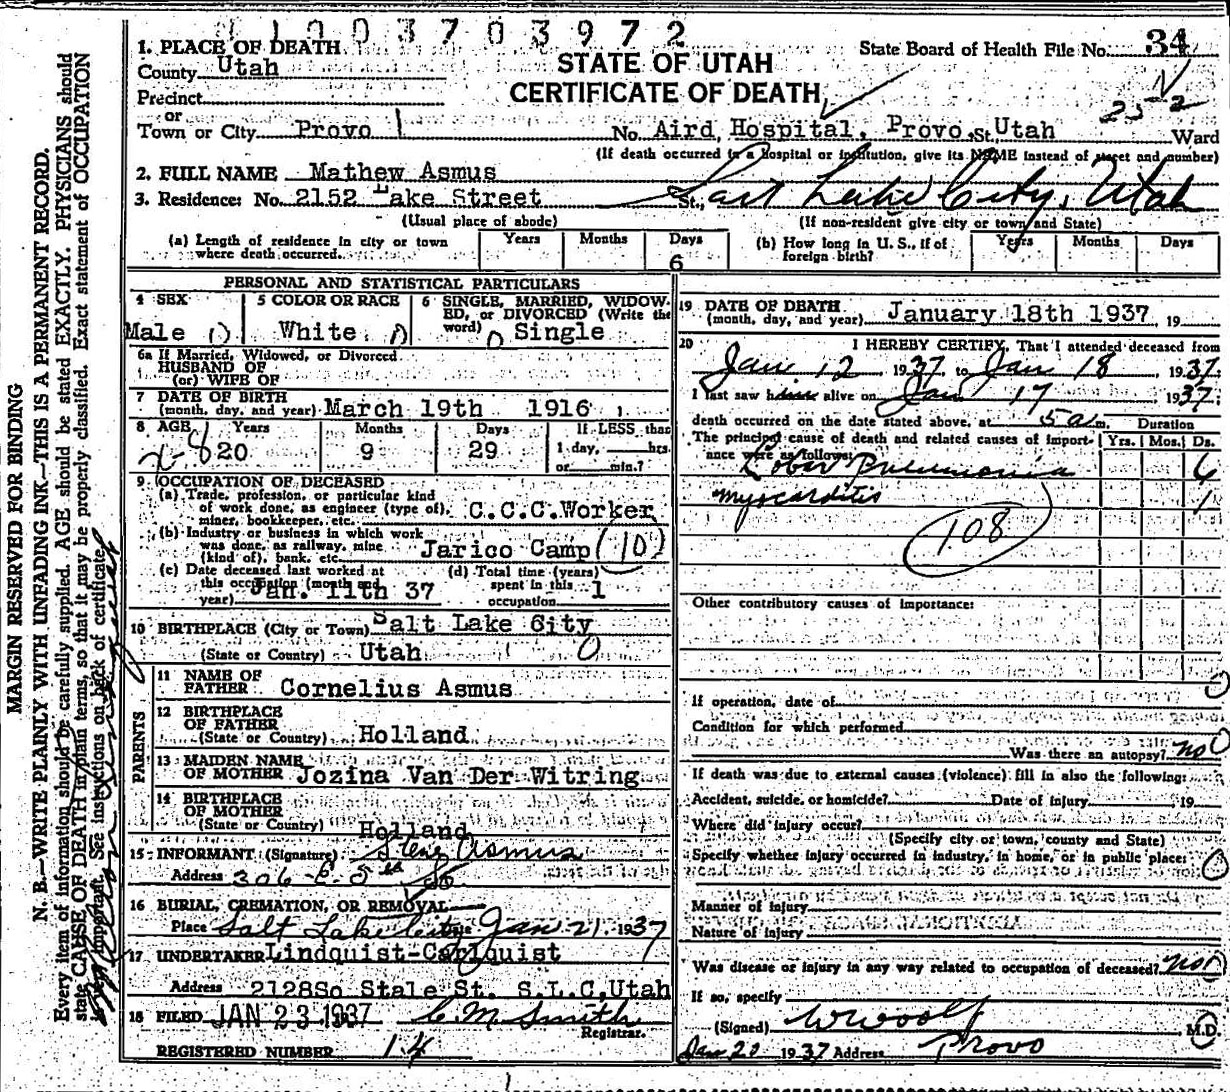 1003703972
1. PLACE OF DEATH
County Utah
Precinct
or
Town or City Provo
STATE OF UTAH
CERTIFICATE OF DEATH
State Board of Health File No. 34
252
No. Aird Hospital, Provo, St. Utah Ward
(If death occurred in a hospital or institution, give its NAME instead of street and number)
2. FULL NAME Mathew Asmus
3. Residence: No. 2152 Lake Street St., Salt Lake City, Utah
(Usual place of abode) (If non-resident give city or town and State)
(a) Length of residence in city or town where death occurred. Years Months Days 6
(b) How long in U. S., if of foreign birth? Years Months Days
PERSONAL AND STATISTICAL PARTICULARS
4 SEX
Male
5 COLOR OR RACE
White
6 SINGLE, MARRIED, WIDOW-
ED, or DIVORCED (Write the
word) Single
6a If Married, Widowed, or Divorced
HUSBAND OF
(or) WIFE OF
7 DATE OF BIRTH
(month, day, and year) March 19th 1916
8 AGE Years Months Days If LESS than
20 9 29 1 day, hrs.
or min.?
9 OCCUPATION OF DECEASED
(a) Trade, profession, or particular kind
of work done, as engineer (type of),
miner, bookkeeper, etc. C.C.C.Worker
(b) Industry or business in which work
was done, as railway, mine
(kind of), bank, etc. Jarico Camp (10)
(c) Date deceased last worked at
this occupation (month and
year) Jan. 11th 37
(d) Total time (years)
spent in this
occupation 1
10 BIRTHPLACE (City or Town) Salt Lake City
(State or Country) Utah 0
PARENTS
11 NAME OF
FATHER Cornelius Asmus
12 BIRTHPLACE
OF FATHER
(State or Country) Holland
13 MAIDEN NAME
OF MOTHER Jozina Van Der Witring
14 BIRTHPLACE
OF MOTHER
(State or Country) Holland
15 INFORMANT (Signature) Asmus
Address 306-E-5
16 BURIAL, CREMATION, OR REMOVAL
Place Salt Lake City Date Jan 21. 1937
17 UNDERTAKER Lindquist-Carlquist
Address 2128So Stale St. S.L.C,Utah
18 FILED JAN 23 1937 C. M. Smith
Registrar.
REGISTERED NUMBER 14
19 DATE OF DEATH
(month, day, and year) January 18th 1937, 19
20 I HEREBY CERTIFY, That I attended deceased from
Jan 12, 1937, to Jan 18, 1937.
I last saw him alive on Jan 17 1937,
death occurred on the date stated above, at 5 a m. Duration
The principal cause of death and related causes of import-
ance were as follows: Yrs. Mos. Ds.
Lobar Pneumonia 6
Myocarditis 1
108
Other contributory causes of importance:
If operation, date of
Condition for which performed
Was there an autopsy? no
If death was due to external causes (violence) fill in also the following:
Accident, suicide, or homicide? Date of injury 19
Where did injury occur?
(Specify city or town, county and State)
Specify whether injury occurred in industry, in home, or in public place:
Manner of injury
Nature of injury
Was disease or injury in any way related to occupation of deceased? no
If so, specify
(Signed) W Woolf M.D.
Jan 20 1937 Address Provo
MARGIN RESERVED FOR BINDING
N. B.—WRITE PLAINLY WITH UNFADING INK—THIS IS A PERMANENT RECORD.
Every item of information should be carefully supplied. AGE should be stated EXACTLY. PHYSICIANS should
state CAUSE OF DEATH in plain terms, so that it may be properly classified. Exact statement of OCCUPATION
important. See instructions on back of certificate.